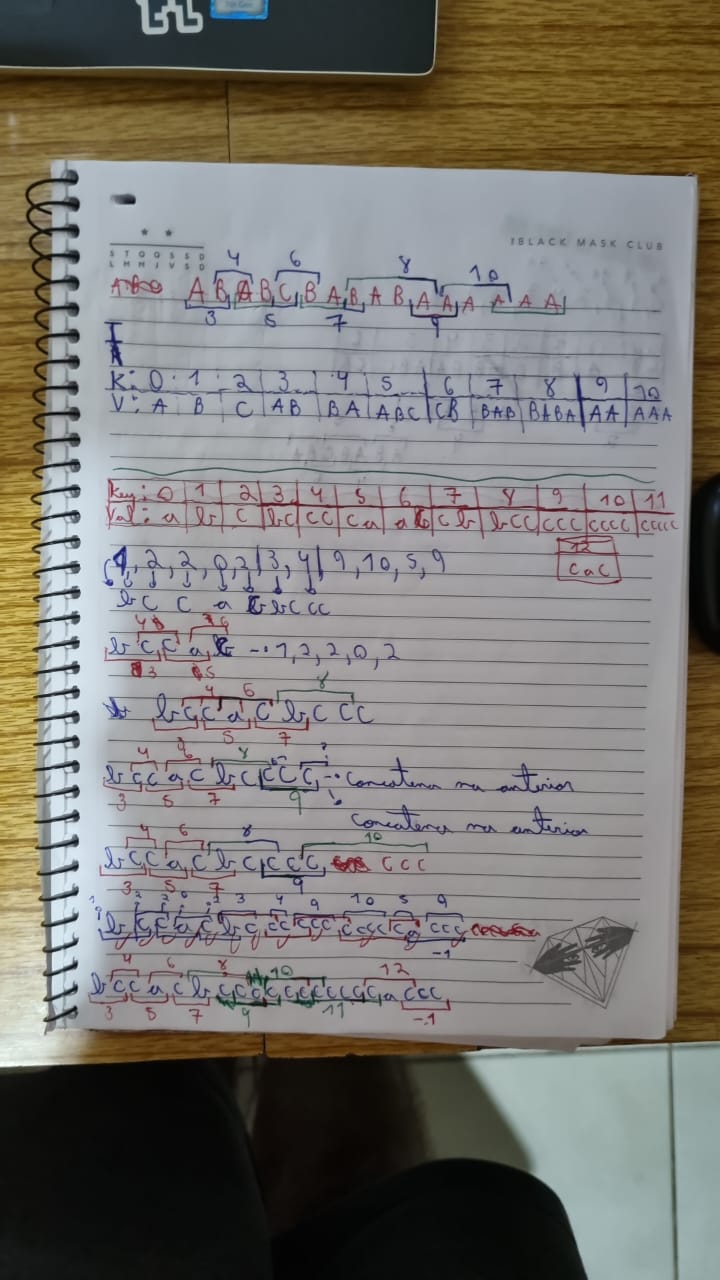 THE BLACK MASK CLUB
S T Q Q S S D
L M M J V S D
4 6 8 10
A B A B C B A B A B A A A A A A
3 5 7 9
K: 0 1 2 3 4 5 6 7 8 9 10
V: A B C AB BA ABC CB BAB BABA AA AAA
Key: 0 1 2 3 4 5 6 7 8 9 10 11
Val: a b c bc cc ca a cb bcc ccc cccc cccc
12
cac
1, 2, 2, 0, 2 | 3, 4 | 9, 10, 5, 9
b c c a bc cc
b c c a 1, 2, 2, 0, 2
3 5
4 6 8
b c c a c b c c c
5 7
4 8
b c c a c b c c c c Concatena na anterior
3 5 7 9
Concatena na anterior
4 6 8 10
b c c a c b c c c c c c c
3 5 7 9
3 4 9 10 5 9
b c c a c b c cc ccc cccc ca ccc
-1
4 6 8 10 12
b c c a c b c c c c c c c c c c c a c c c
3 5 7 9 11 -1